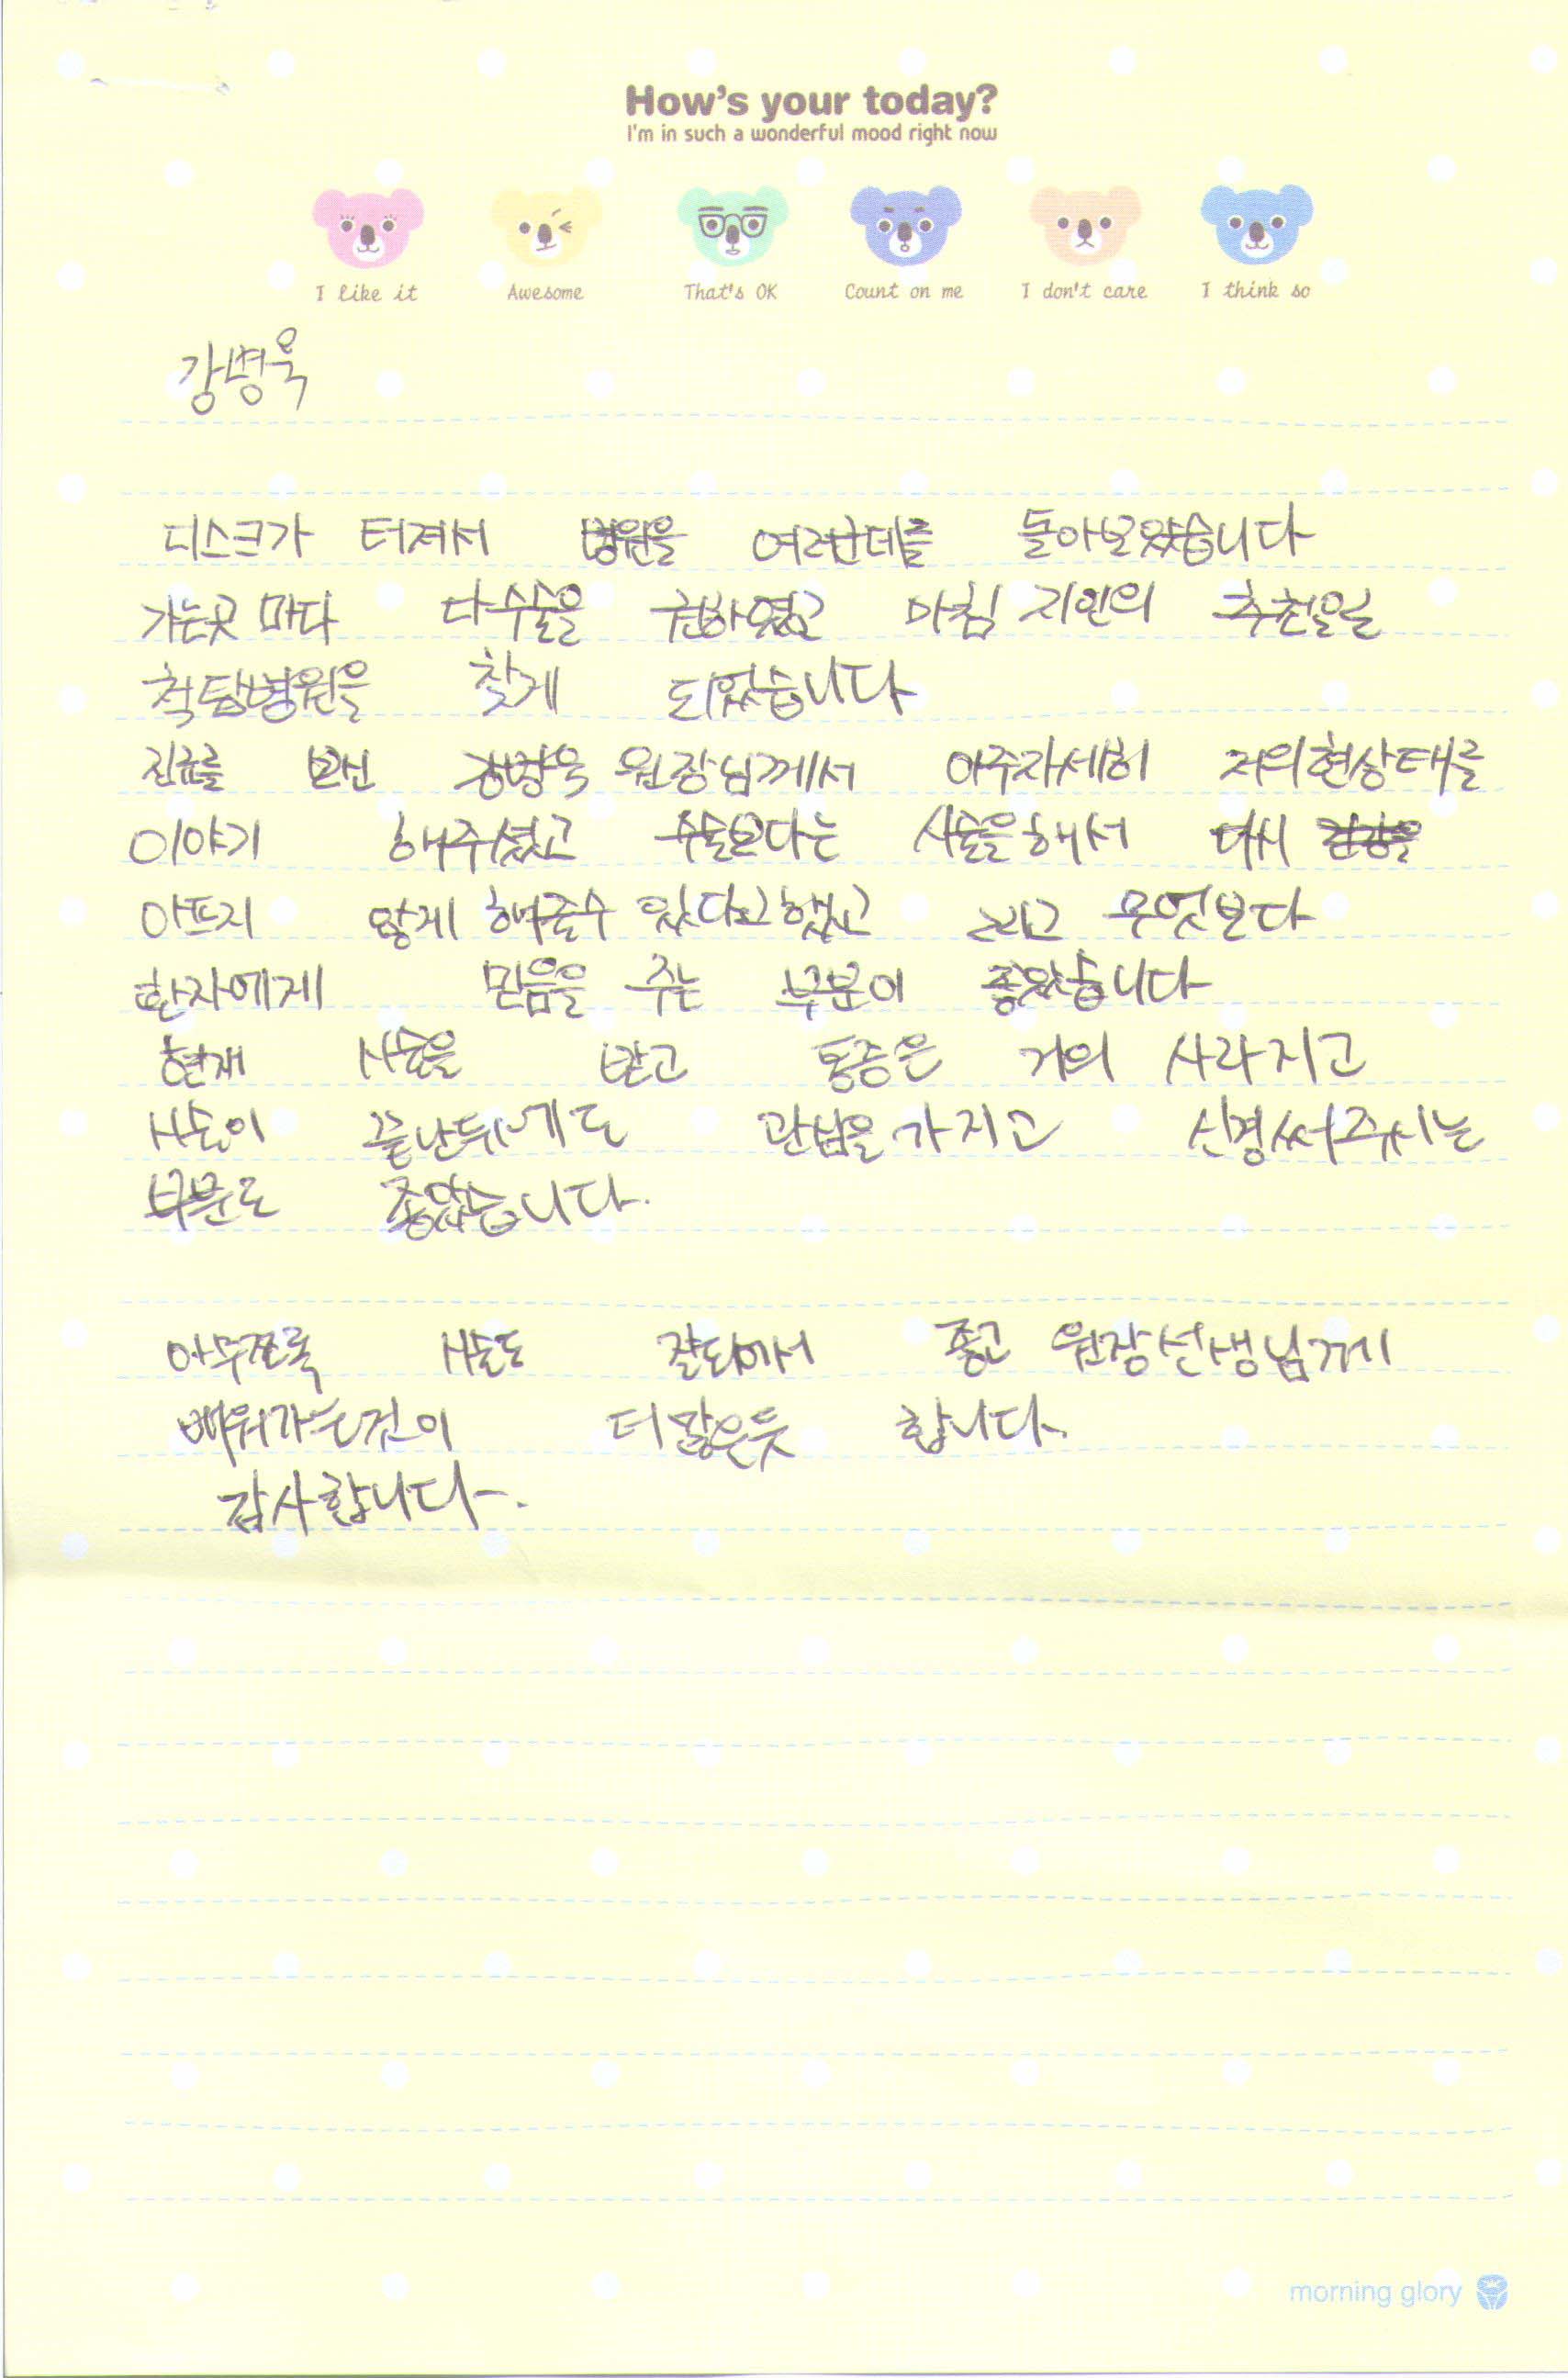 How's your today?
I'm in such a wonderful mood right now
I like it Awesome That's OK Count on me I don't care I think so
강병욱
디스크가 터져서 병원을 여러군데를 돌아보았습니다
가는곳 마다 다수술을 권하였고 마침 지인의 추천을
척탑병원을 찾게 되었습니다
진료를 보신 강병욱 원장님께서 아주자세히 저의현상태를
이야기 해주셨고 수술보다는 시술을해서 다시
아프지 않게 해줄수 있다고했고 그리고 무엇보다
환자에게 믿음을 주는 부분이 좋았습니다
현재 시술을 받고 통증은 거의 사라지고
시술이 끝난뒤에도 관심을 가지고 신경써주시는
부분도 좋았습니다.
아무쪼록 시술도 잘되어서 좋고 원장선생님께
배워가는것이 더많은듯 합니다.
감사합니다.
morning glory